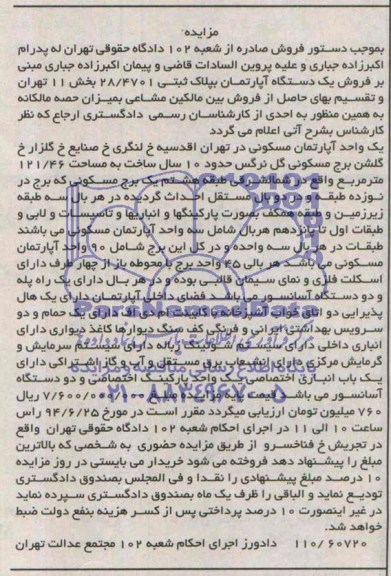 مزایده
بموجب دستور فروش صادره از شعبه ۱۰۲ دادگاه حقوقی تهران له پدرام
اکبرزاده جباری و علیه پروین السادات قاضی و پیمان اکبرزاده جباری مبنی
بر فروش یک دستگاه آپارتمان بپلاک ثبتی ۲۸/۴۷۰۱ بخش ۱۱ تهران
و تقسیم بهای حاصل از فروش بین مالکین مشاعی بمیزان حصه مالکانه
به همین منظور به احدی از کارشناسان رسمی دادگستری ارجاع که نظر
کارشناس بشرح آتی اعلام می گردد
یک واحد آپارتمان مسکونی در تهران اقدسیه خ لنگری خ صنایع خ گلزار خ
گلشن برج مسکونی گل نرگس حدود ۱۰ سال ساخت به مساحت ۱۲۱/۴۶
مترمربع واقع در شمالشرقی طبقه هشتم یک برج مسکونی که برج در
نوزده طبقه در دو بال مستقل احداث گردیده در هر بال سه طبقه
زیرزمین و طبقه همکف بصورت پارکینگها و انباریها و تاسیسات و لابی و
طبقات اول تا پانزدهم هربال شامل سه واحد آپارتمان مسکونی می باشند
طبقات در هر بال سه واحده و در کل این برج شامل ۹۰ واحد آپارتمان
مسکونی می باشد هر بالی ۴۵ واحد برج با محوطه باز از چهار طرف دارای
اسکلت فلزی و نمای سیمان قالبی بوده و در هر بال دارای یک راه پله
و دو دستگاه آسانسور می باشد فضای داخلی آپارتمان دارای یک هال
پذیرایی دو اتاق خواب آشپزخانه با کابینت ام دی اف دارای یک حمام و دو
سرویس بهداشتی ایرانی و فرنگی کف سنگ دیوارها کاغذ دیواری دارای
انباری داخلی دارای سیستم شوتینگ زباله دارای سیستم سرمایش و
گرمایش مرکزی دارای انشعاب برق مستقل و آب و گاز اشتراکی دارای
یک باب انباری اختصاصی یک واحد پارکینگ اختصاصی و دو دستگاه
آسانسور می باشد قیمت پایه مزایده مبلغ ۷/۶۰۰/۰۰۰/۰۰۰ ریال
۷۶۰ میلیون تومان ارزیابی میگردد مقرر است در مورخ ۹۴/۶/۲۵ راس
ساعت ۱۰ الی ۱۱ در اجرای احکام شعبه ۱۰۲ دادگاه حقوقی تهران واقع
در تجریش خ فناخسرو از طریق مزایده حضوری به شخصی که بالاترین
مبلغ را پیشنهاد دهد فروخته می شود خریدار می بایستی در روز مزایده
۱۰ درصد مبلغ پیشنهادی را نقدا و فی المجلس بصندوق دادگستری
تودیع نماید و الباقی را ظرف یک ماه بصندوق دادگستری سپرده نماید
در غیر اینصورت ۱۰ درصد پرداختی پس از کسر هزینه بنفع دولت ضبط
خواهد شد.
۱۱۰/۶۰۷۲۰ دادورز اجرای احکام شعبه ۱۰۲ مجتمع عدالت تهران
پایگاه اطلاع رسانی مناقصه و مزایده
۰۲۱-۸۸۳۴۹۶۷۰-۵